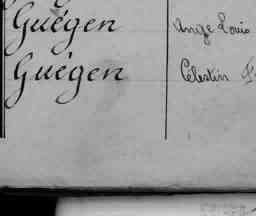 Guégen Ange Louis
Guégen Célestin